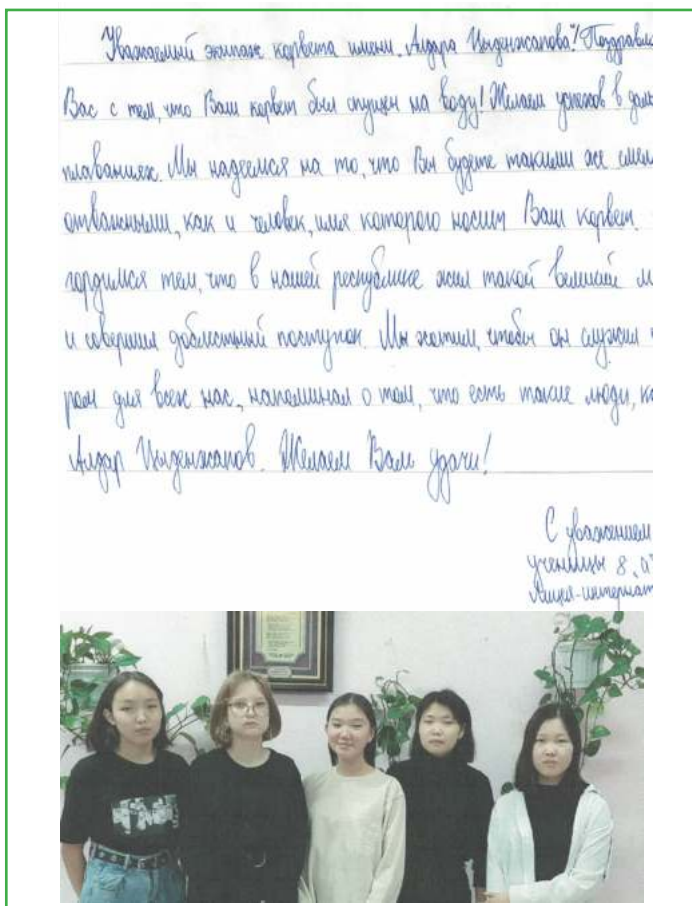 Уважаемый экипаж корвета имени „Алдара Цыденжапова"! Поздравля
Вас с тем, что Ваш корвет был спущен на воду! Желаем успехов в даль
плаваниях. Мы надеемся на то, что Вы будете такими же смел
отважными, как и человек, имя которого носит Ваш корвет.
гордимся тем, что в нашей республике жил такой великий
и совершил доблестный поступок. Мы хотим, чтобы он служил
ром для всех нас, напоминал о том, что есть такие люди, ка
Алдар Цыденжапов. Желаем Вам удачи!
С уважением
ученицы 8 „а"
Лицея-интернат